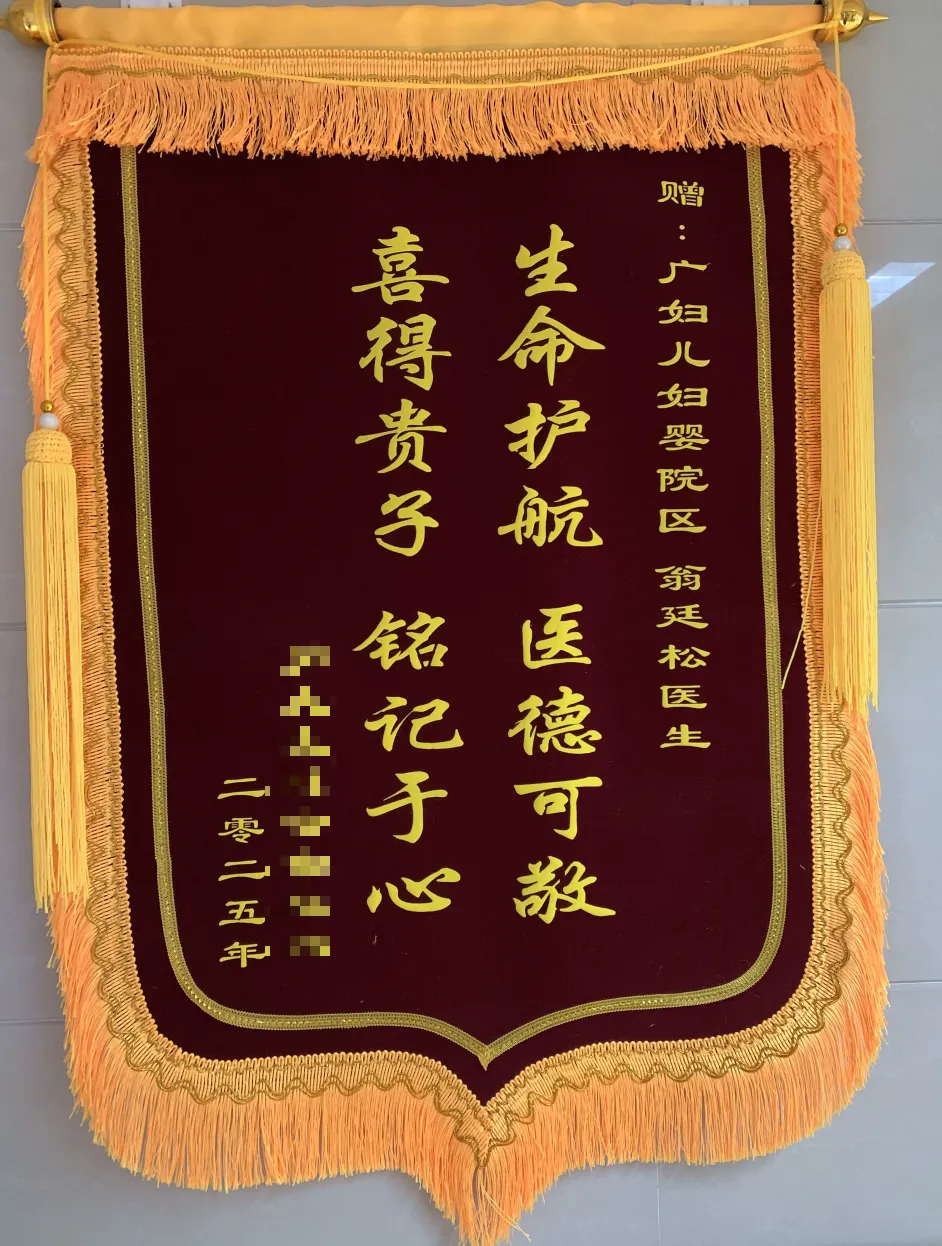 赠：广妇儿妇婴院区 翁廷松医生
生命护航 医德可敬
喜得贵子 铭记于心
二零二五年